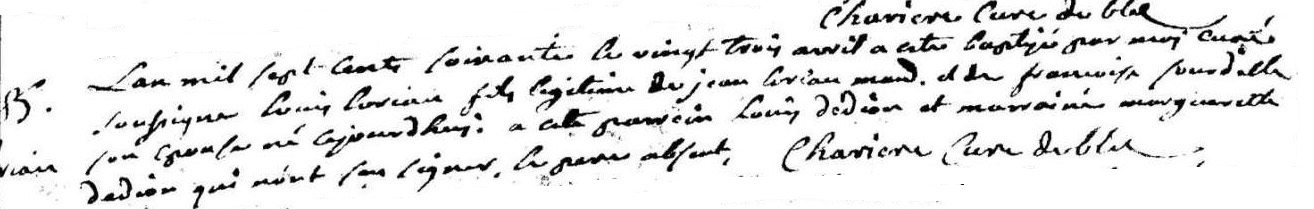 Chariere Cure de blet
B. Lan mil sept cents soixante le vingt trois avril a ete baptisé par moj curé
soussigné Louis Lorian fils legitime de jean lorian mand. et de francoise sourdelle
rian son epouse né cejourdhuj. a ete parrein Louis dedion et marraine marguerette
dedion qui n'ont seu signer, le pere absent. Chariere Cure de blet